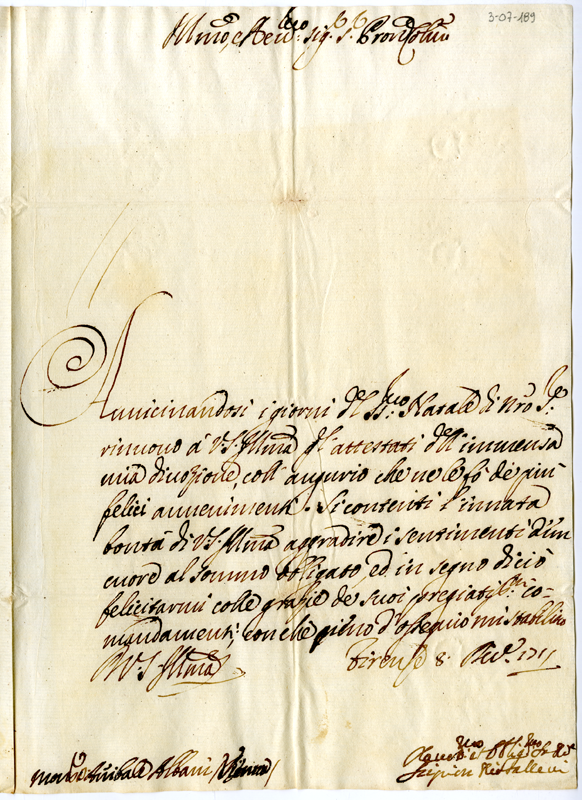 3-07-189
Illmo, e Rev.mo Sig.r S.r Pron Colmo
Auuicinandosi i giorni del S.mo Natale di Nro S.re
rinuouo à V.S. Illma gl'attestati dell'immensa
mia diuozione, coll'augurio che ne le fò de più
felici auuenimenti. Si contenti l'innata
bontà di V.S. Illma aggradire i sentimenti d'un
cuore al sommo obligato, ed in segno di ciò
felicitarmi colle grazie de suoi pregiatis.mi co-
mandamenti, con che pieno d'ossequio mi stabilisco
D V.S. Illma Firenze 8. 1711
Mons.r Annibale Albani